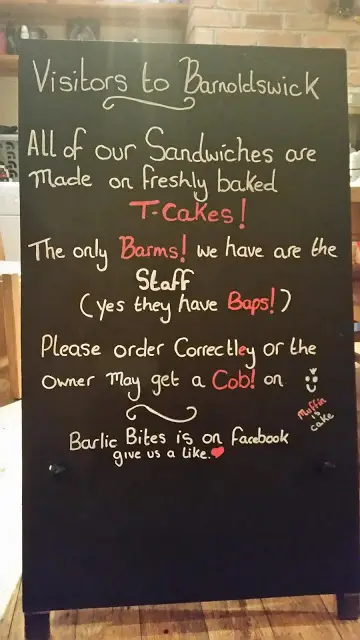 Visitors to Barnoldswick
All of our Sandwiches are
Made on freshly baked
T-Cakes!
The only Barms! we have are the
Staff
(yes they have Baps!)
Please order Correctley or the
owner May get a Cob! on
Muffin
is
cake
Barlic Bites is on Facebook
give us a like.